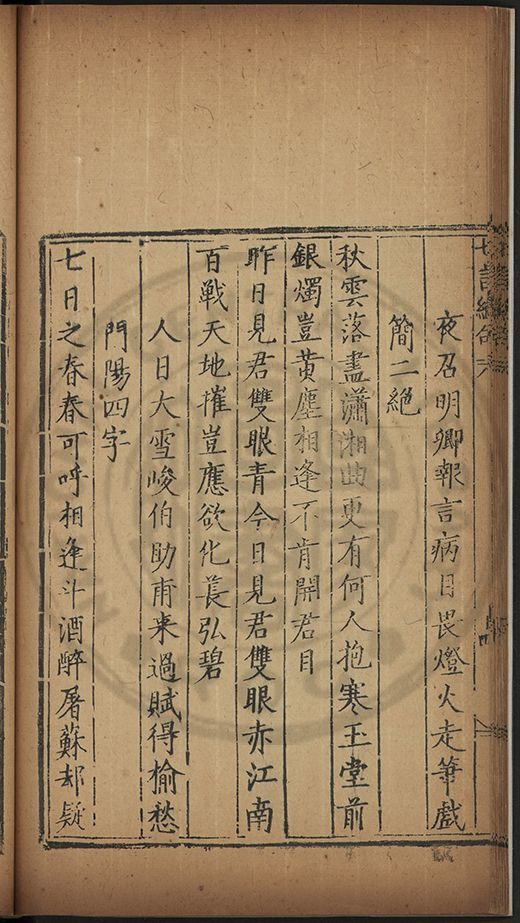 夜召明卿報言病目畏燈火走筆戲
簡二絕
秋雲落盡瀟湘曲更有何人抱寒玉堂前
銀燭豈黃塵相逢不肯開君目
昨日見君雙眼青今日見君雙眼赤江南
百戰天地摧豈應欲化萇弘碧
人日大雪峻伯助甫来過賦得榆愁
門陽四字
七日之春春可呼相逢斗酒醉屠蘇却疑